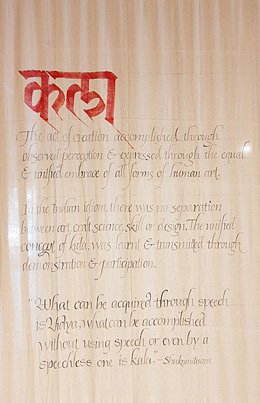 कला
The act of creation accomplished through
observed perception & expressed through the equal
& unified embrace of all forms of human art.
In the Indian idiom, there was no separation
between art, craft, science, skill or design. The unified
concept of kala, was learnt & transmitted through
demonstration & participation.
"What can be acquired through speech
is Vidya, what can be accomplished
without using speech or even by a
speechless one is kala." - Shukranitisara